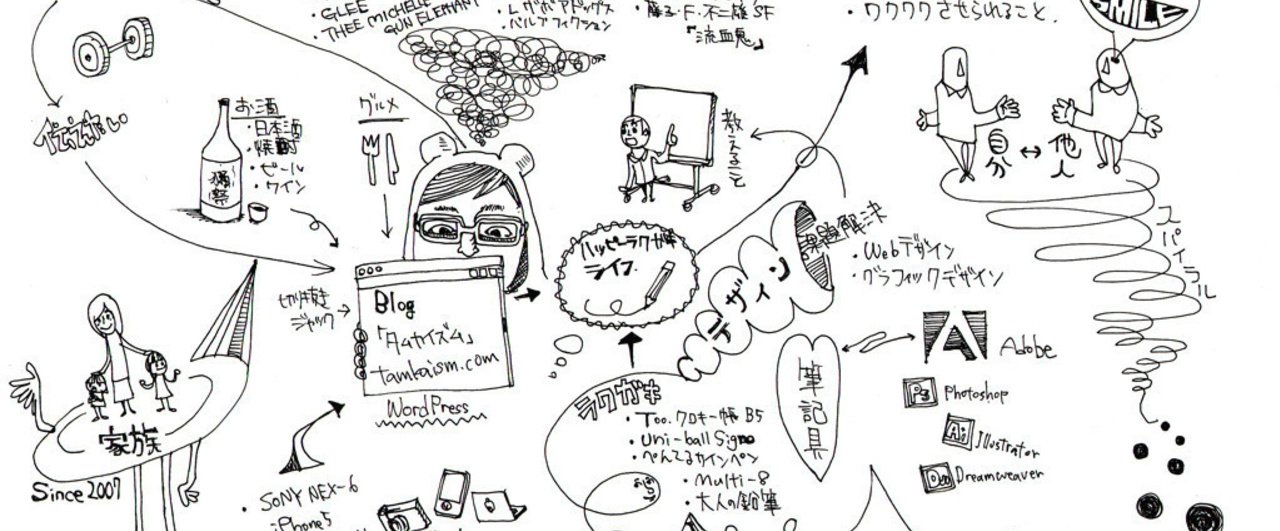 ・GLEE
・THEE MICHELLE
GUN ELEPHANT
・パルプフィクション
・藤子・F・不二雄 SF
「流血鬼」
・ワクワクさせられること.
SMILE
お酒
・日本酒
・焼酎
・ビール
・ワイン
獺祭
グルメ
教えること
自分 ↔ 他人
スパイラル
課題解決
・Webデザイン
・グラフィックデザイン
デザイン
ハッピーラクガキ
ライフ.
切り抜き
ジャック
Blog
「タムカイズム」
tamkaism.com
WordPress
家族
Since 2007
・SONY NEX-6
iPhone5
ラクガキ
・Too.クロッキー帳 B5
・Uni-ball Signo
・ぺんてるサインペン
・Multi-8
・大人の鉛筆
筆記具
Adobe
Ps
Photoshop
Ai
Illustrator
Dw
Dreamweaver